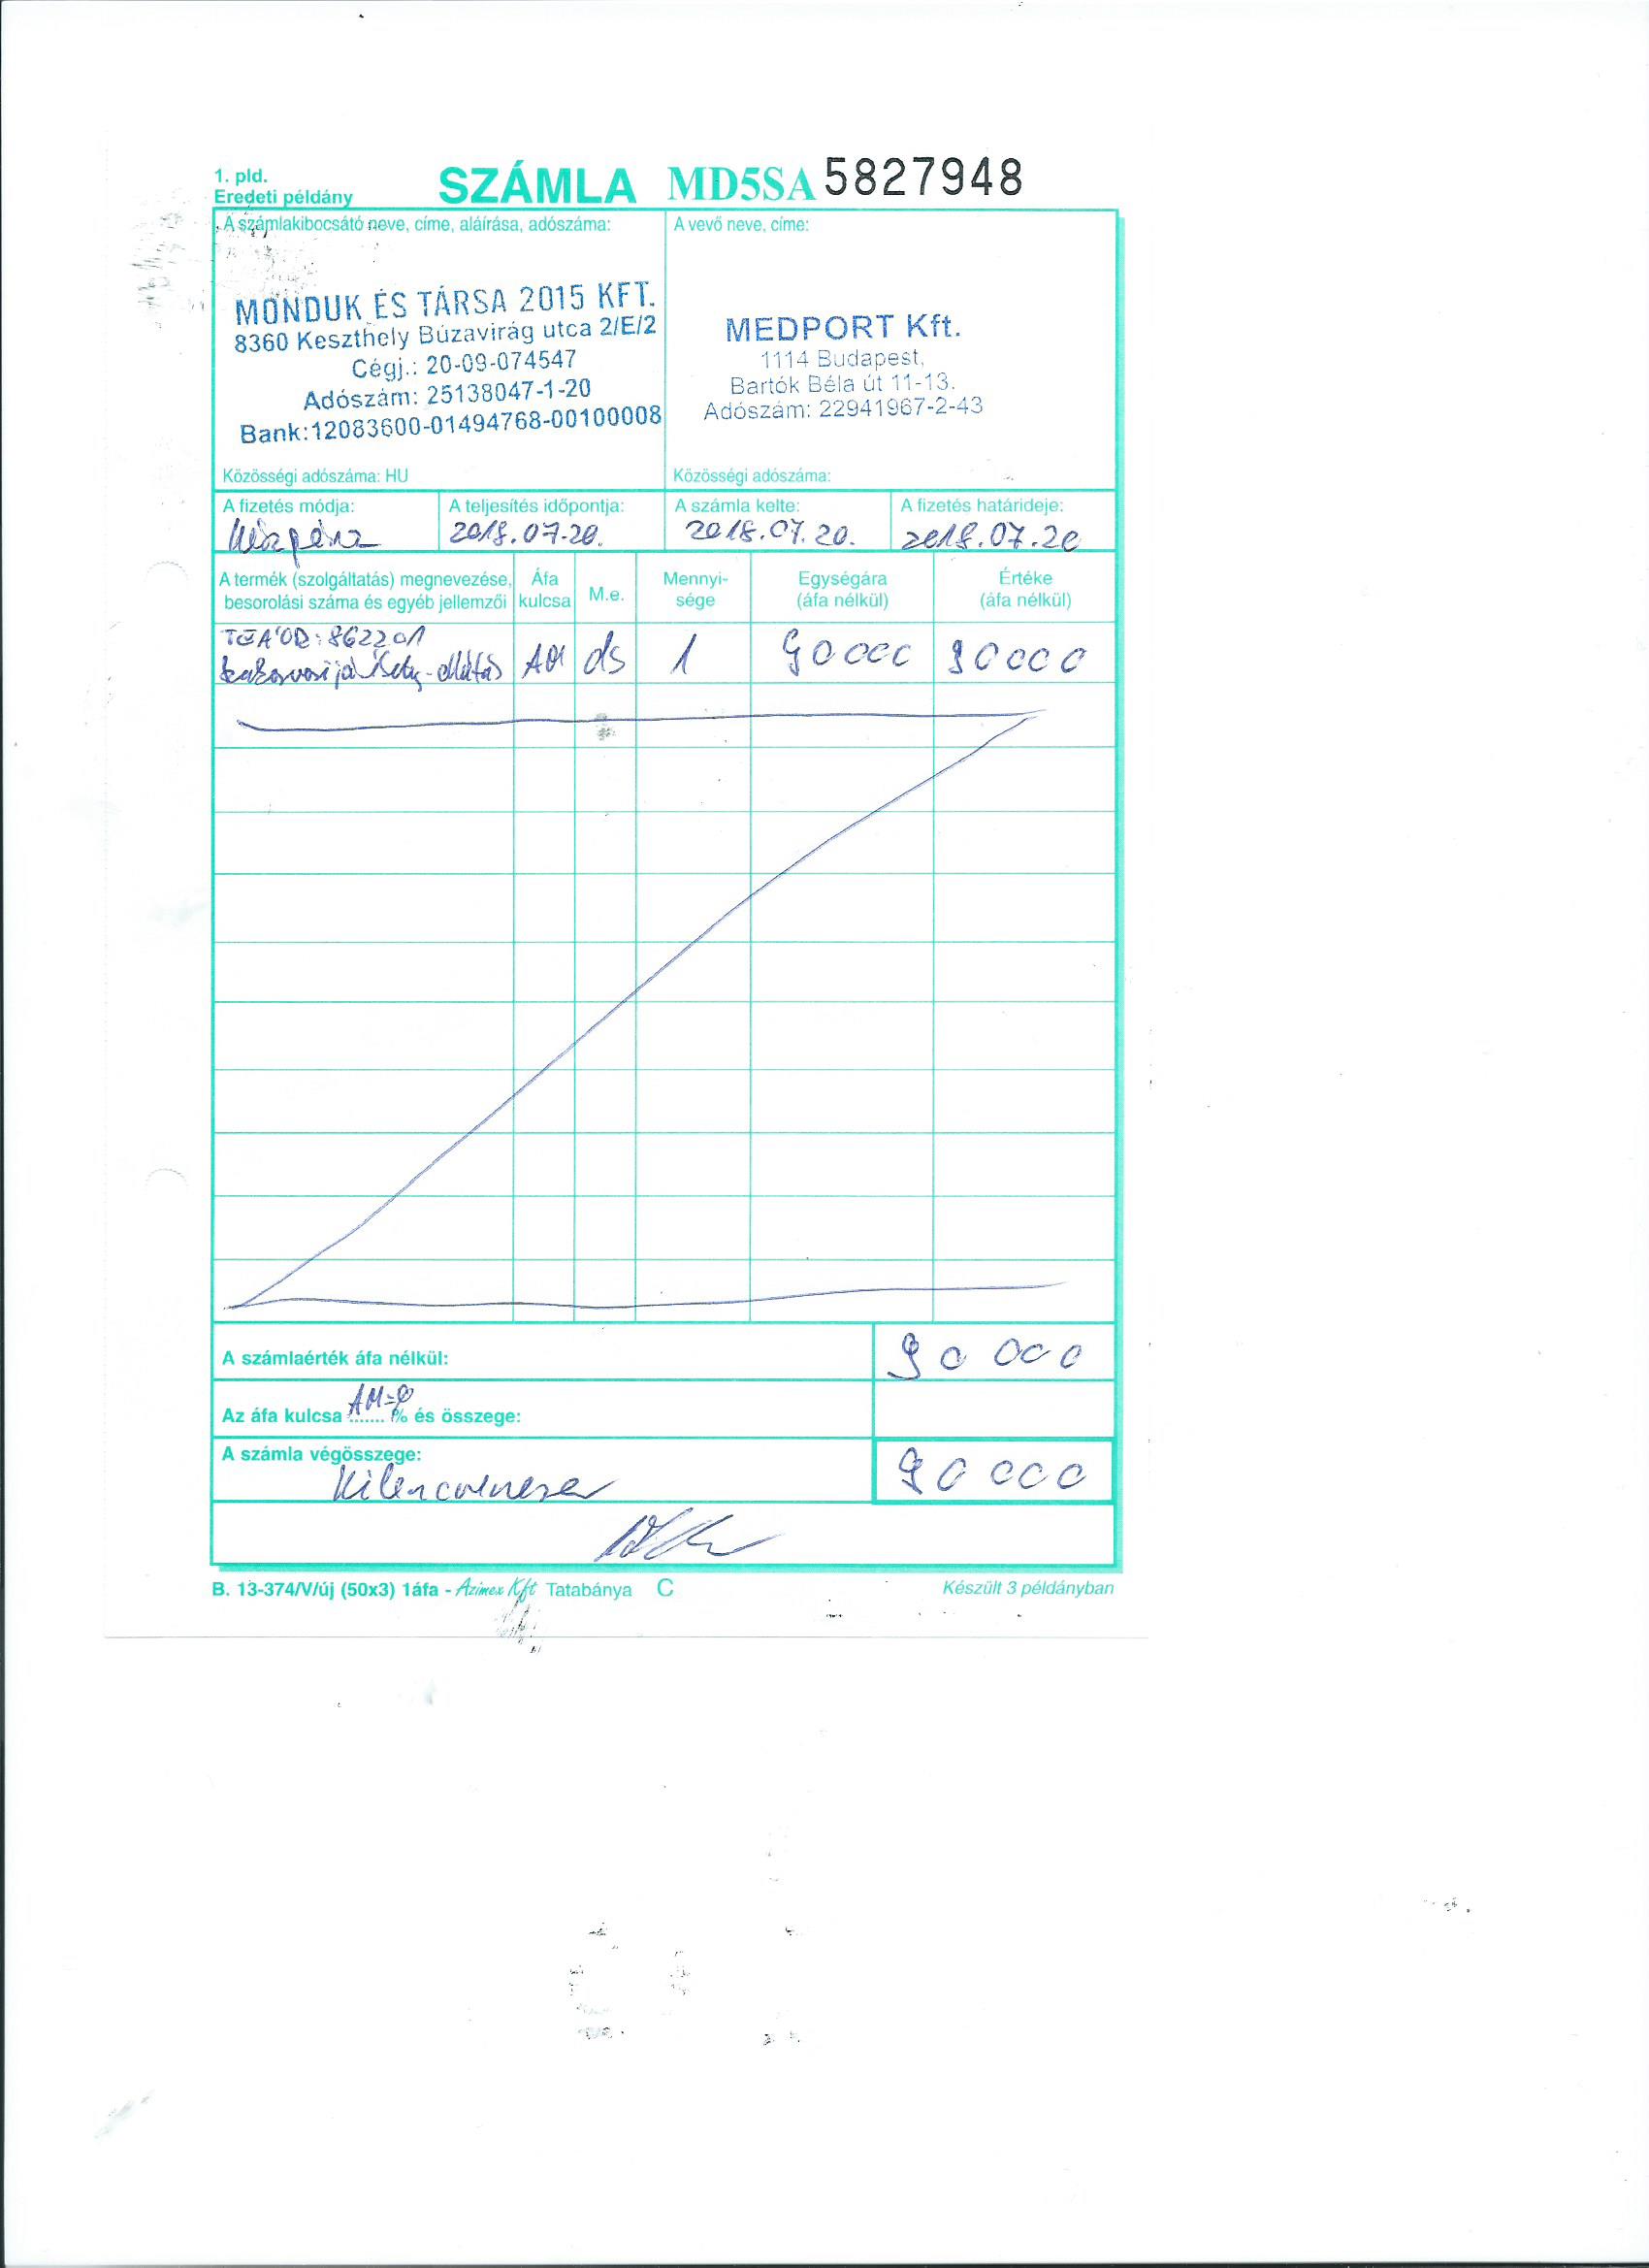 1. pld.
Eredeti példány
SZÁMLA MD5SA 5827948
A számlakibocsátó neve, címe, aláírása, adószáma:
MONDUK ÉS TÁRSA 2015 KFT.
8360 Keszthely Búzavirág utca 2/E/2
Cégj.: 20-09-074547
Adószám: 25138047-1-20
Bank:12083600-01494768-00100008
Közösségi adószáma: HU
A vevő neve, címe:
MEDPORT Kft.
1114 Budapest,
Bartók Béla út 11-13.
Adószám: 22941967-2-43
Közösségi adószáma:
A fizetés módja: A teljesítés időpontja: A számla kelte: A fizetés határideje:
Készpénz 2018.07.20. 2018.07.20. 2018.07.20
A termék (szolgáltatás) megnevezése, besorolási száma és egyéb jellemzői Áfa kulcsa M.e. Mennyi-sége Egységára (áfa nélkül) Értéke (áfa nélkül)
TEÁOR: 862201
szakorvosi járóbeteg-ellátás AM db 1 90 000 90 000
A számlaérték áfa nélkül: 90 000
Az áfa kulcsa AM=0 % és összege:
A számla végösszege: 90 000
Kilencvenezer
B. 13-374/V/új (50x3) 1áfa - Azimex Kft Tatabánya C Készült 3 példányban